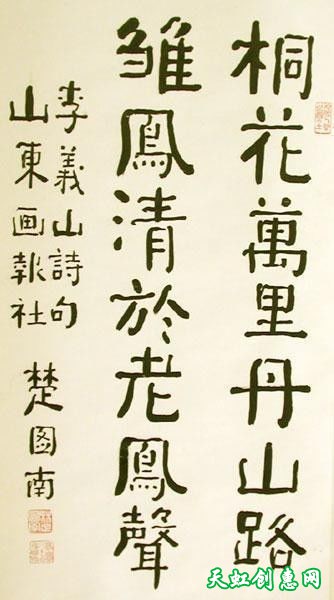 桐花萬里丹山路
雛鳳清於老鳳聲
李義山詩句
山東画報社
楚图南
天虹创意网